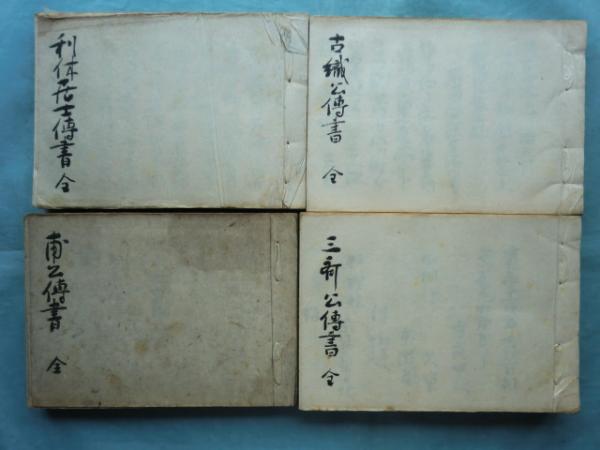 利休居士傳書 全
古織公傳書 全
甫公傳書 全
三斎公傳書 全